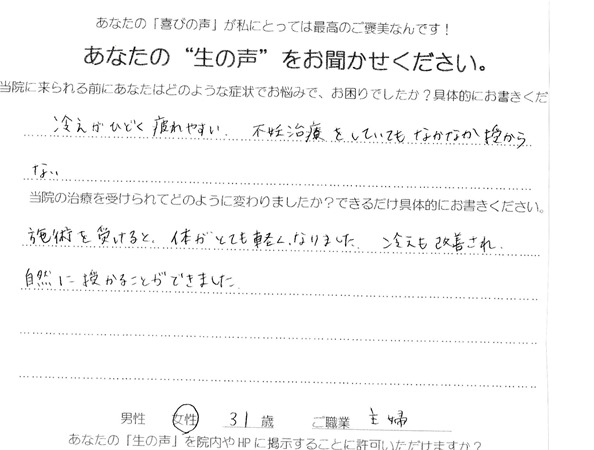 あなたの「喜びの声」が私にとっては最高のご褒美なんです！
あなたの“生の声”をお聞かせください。
当院に来られる前にあなたはどのような症状でお悩みで、お困りでしたか？具体的にお書きくだ
冷えがひどく疲れやすい、不妊治療をしていてもなかなか授から
ない
当院の治療を受けられてどのように変わりましたか？できるだけ具体的にお書きください。
施術を受けると、体がとても軽くなりました。冷えも改善され、
自然に授かることができました。
男性 女性 31歳 ご職業 主婦
あなたの「生の声」を院内やHPに掲示することに許可いただけますか？